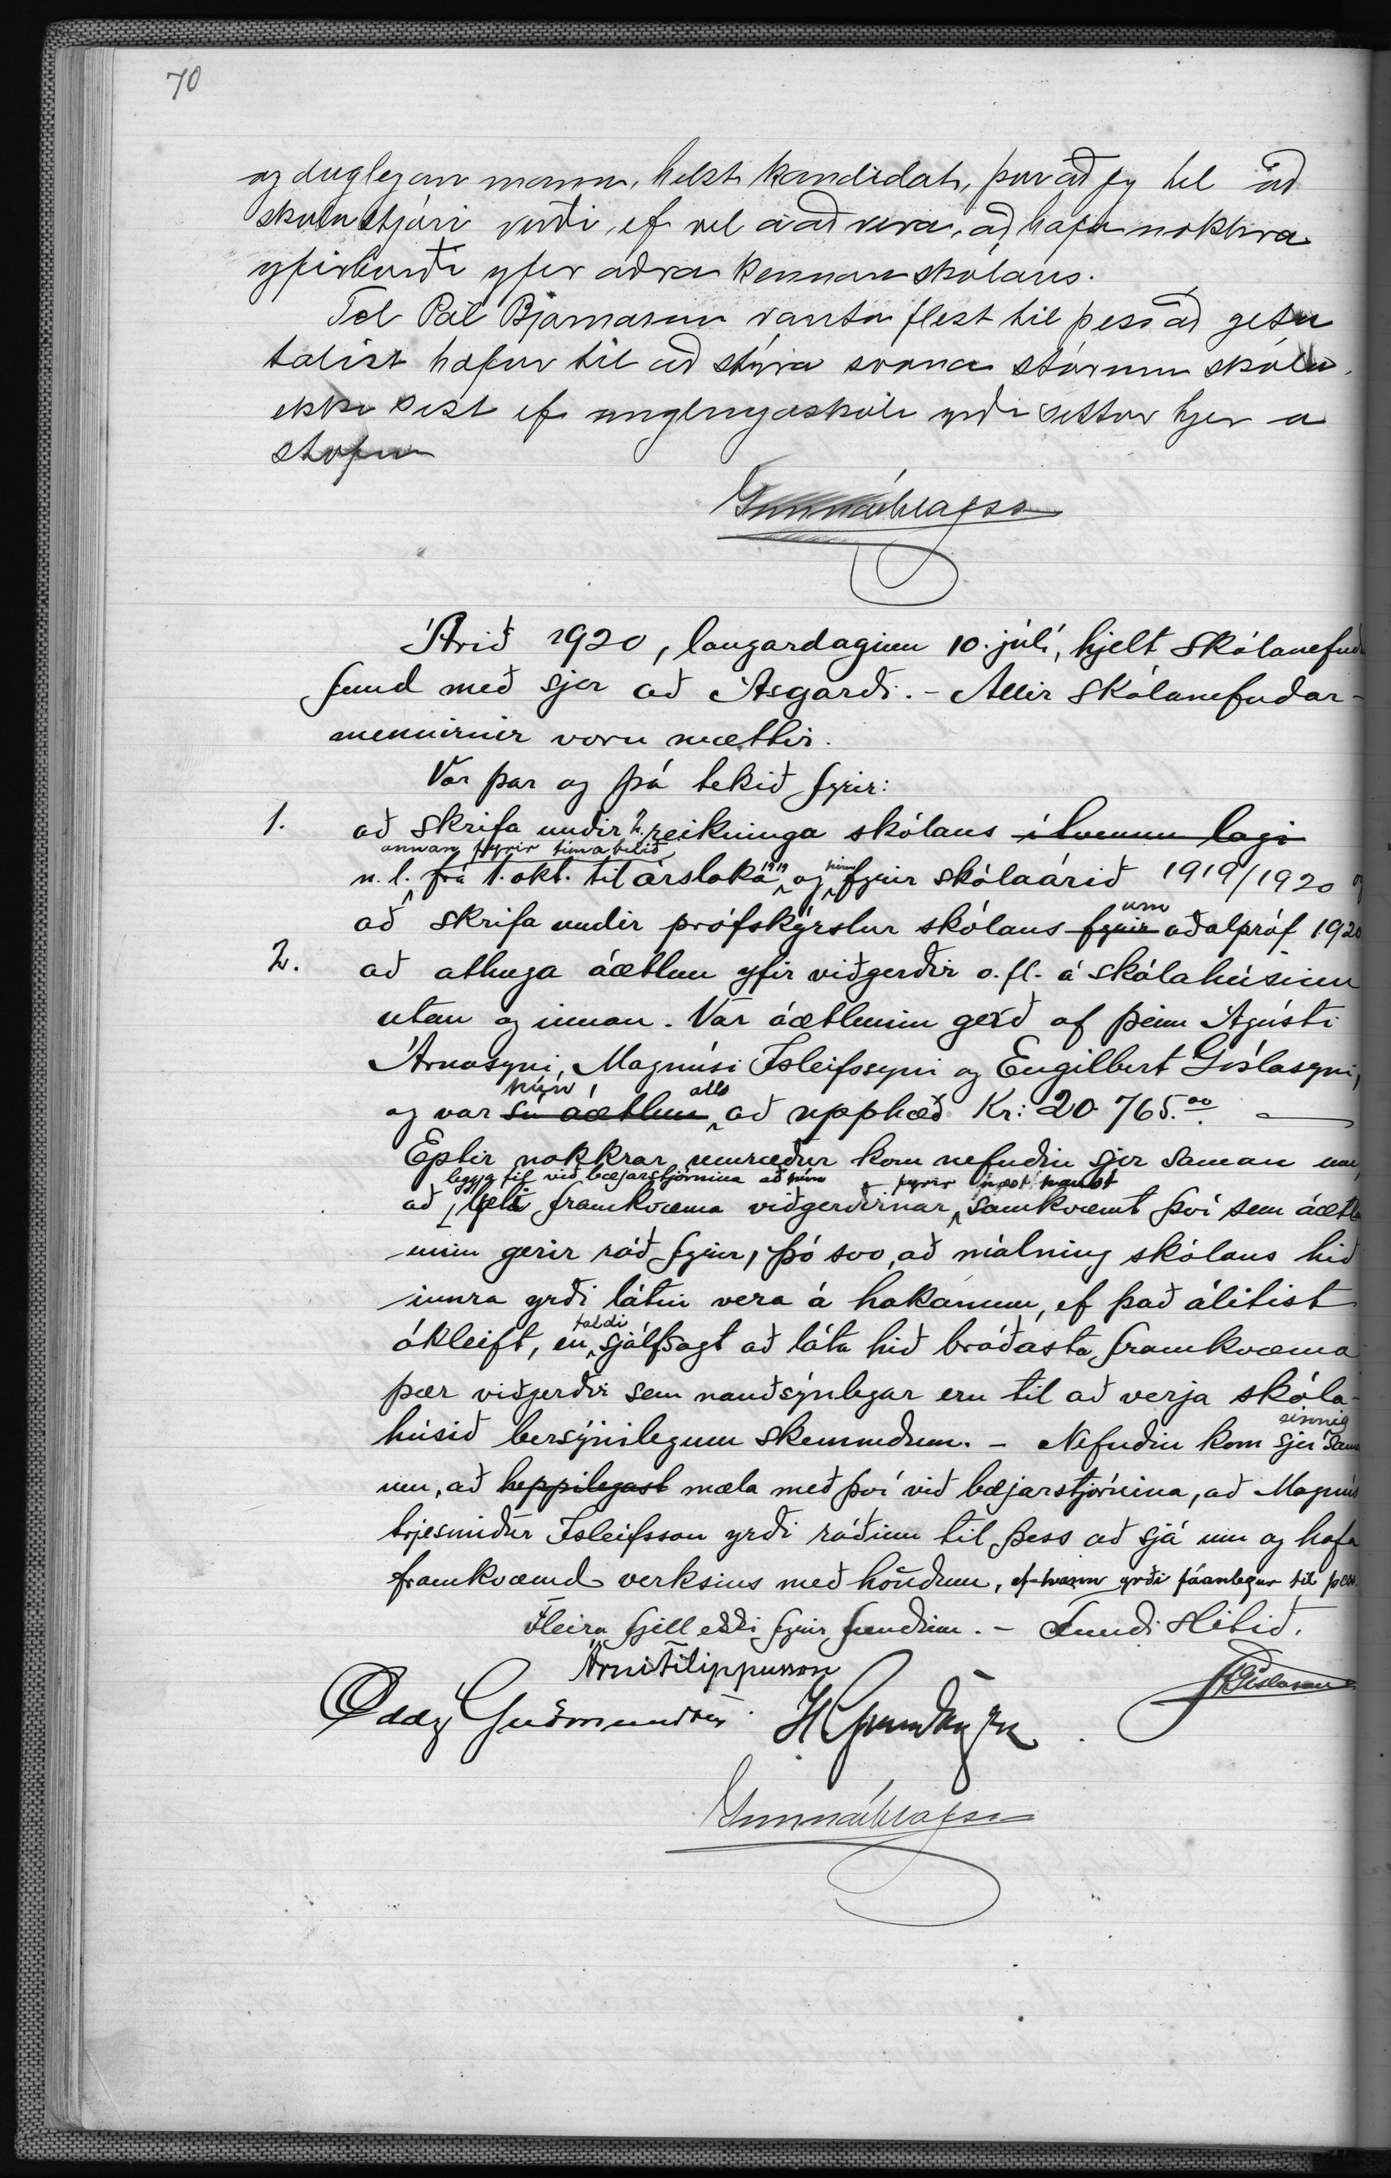 70
og duglegan mann, helst kandidat, því að jeg tel að
skólastjóri verði, ef vel á að vera, að hafa nokkra
yfirburði yfir aðra kennara skólans.
Tel Pál Bjarnason vanta flest til þess að geta
talist hæfur til að stýra svona stórum skóla,
ekki síst ef unglingaskóli yrði settur hjer á
stofn
Gunnar Ólafsson
Árið 1920, laugardaginn 10. júlí, hjelt skólanefnd
fund með sjer að Ásgarði. - Allir skólanefndar-
mennirnir voru mættir.
Var þar og þá tekið fyrir:
1. að skrifa undir 2. reikninga skólans í tvennu lagi
annan fyrir tímabilið
n. l. frá 1. okt. til ársloka 1919 og hinn fyrir skólaárið 1919/1920 og
að skrifa undir prófskýrslur skólans fyrir um aðalpróf 1920
2. að athuga áætlun yfir viðgerðir o. fl. á skólahúsinu
utan og innan. Var áætlunin gerð af þeim Ágústi
Árnasyni, Magnúsi Ísleifssyni og Engilbert Gíslasyni,
og var sú áætlun hún alls að upphæð Kr: 20.765.00
Eptir nokkrar umræður kom nefndin sjer saman um,
leggja til við bæjarstjórnina að hún
að láti framkvæma viðgerðirnar fyrir næst haust samkvæmt því sem áætl
unin gerir ráð fyrir, þó svo, að málning skólans hið
innra yrði látin vera á hakanum, ef það álitist
ókleift, en taldi sjálfsagt að láta hið bráðasta framkvæma
þær viðgerðir sem nauðsýnlegar eru til að verja skóla-
húsið bersýnilegum skemmdum. - Nefndin kom sjer einnig sam
um, að heppilegast mæla með því við bæjarstjórnina, að Magnús
trjesmiður Ísleifsson yrði ráðinn til þess að sjá um og hafa
framkvæmd verksins með höndum, ef hann yrði fáanlegur til þess.
Fleira fjell ekki fyrir fundinn. - Fundi slitið.
Árni Filippusson
Oddg Guðmundsen
J Gíslason
Gunnar Ólafsson